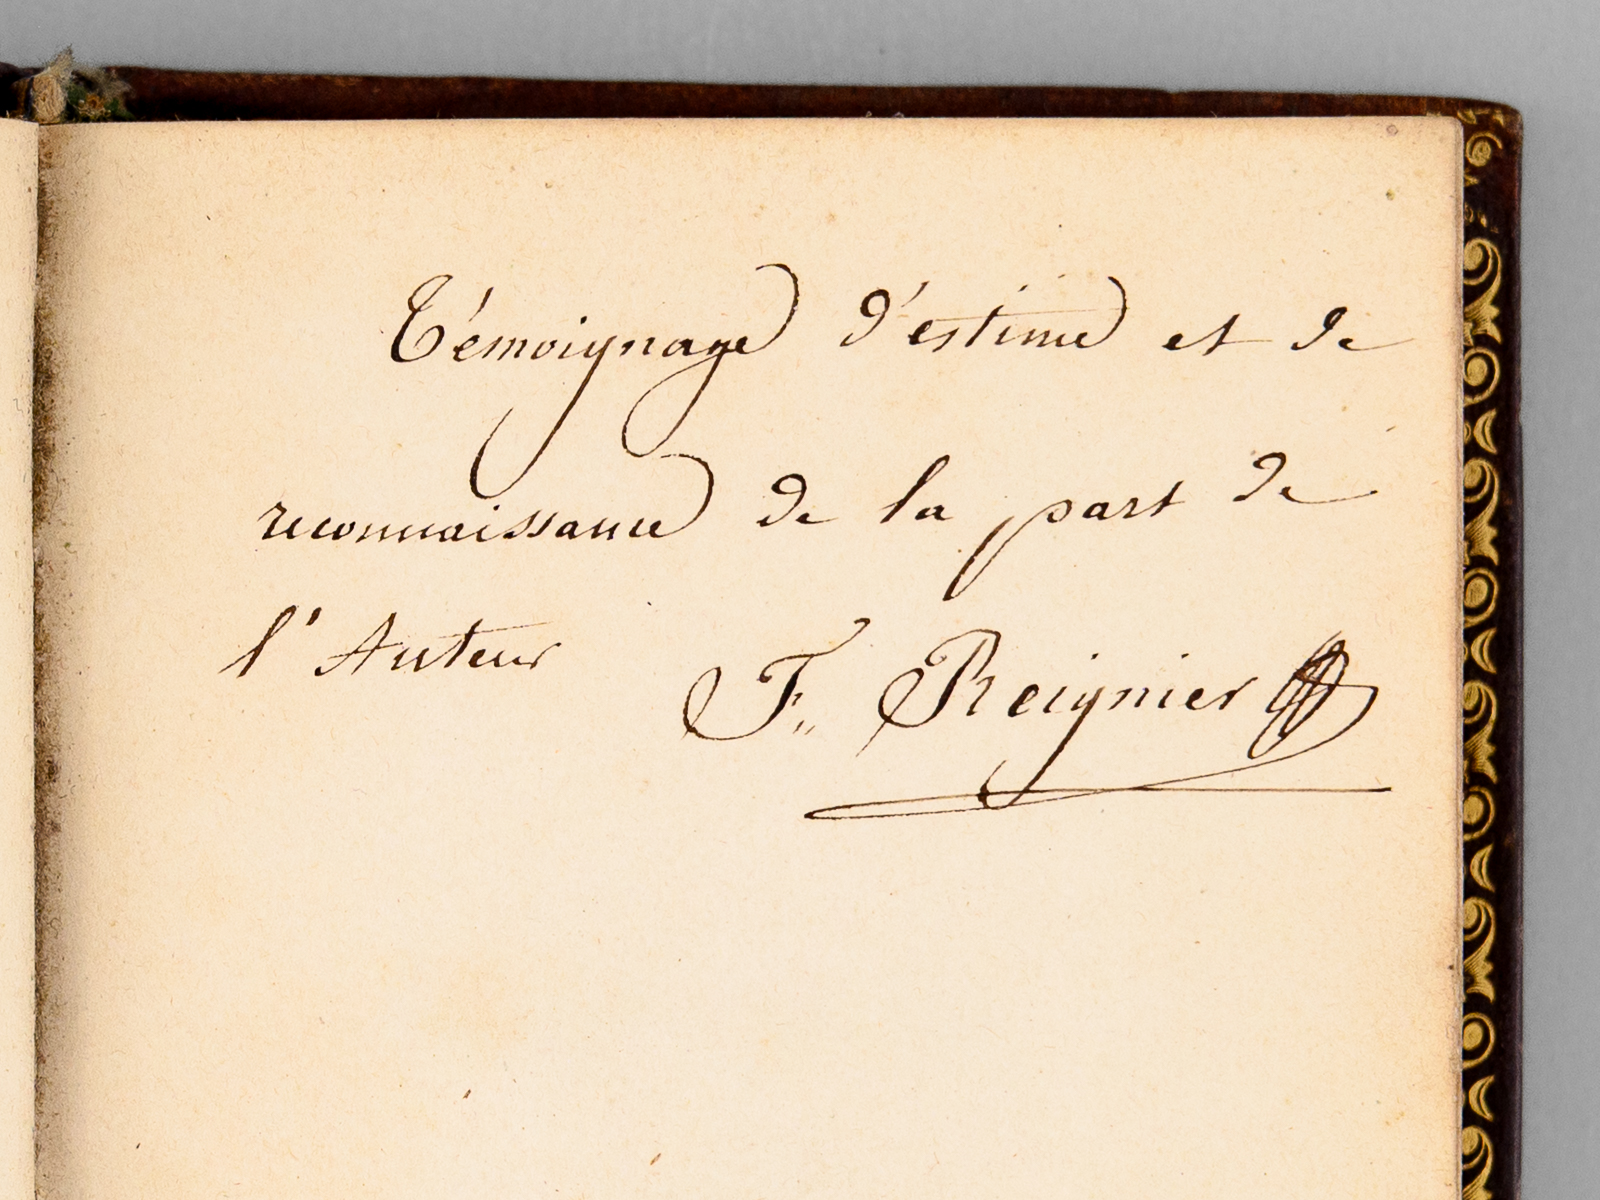 Témoignage d'estime et de
reconnaissance de la part de
l'Auteur F. Reignier